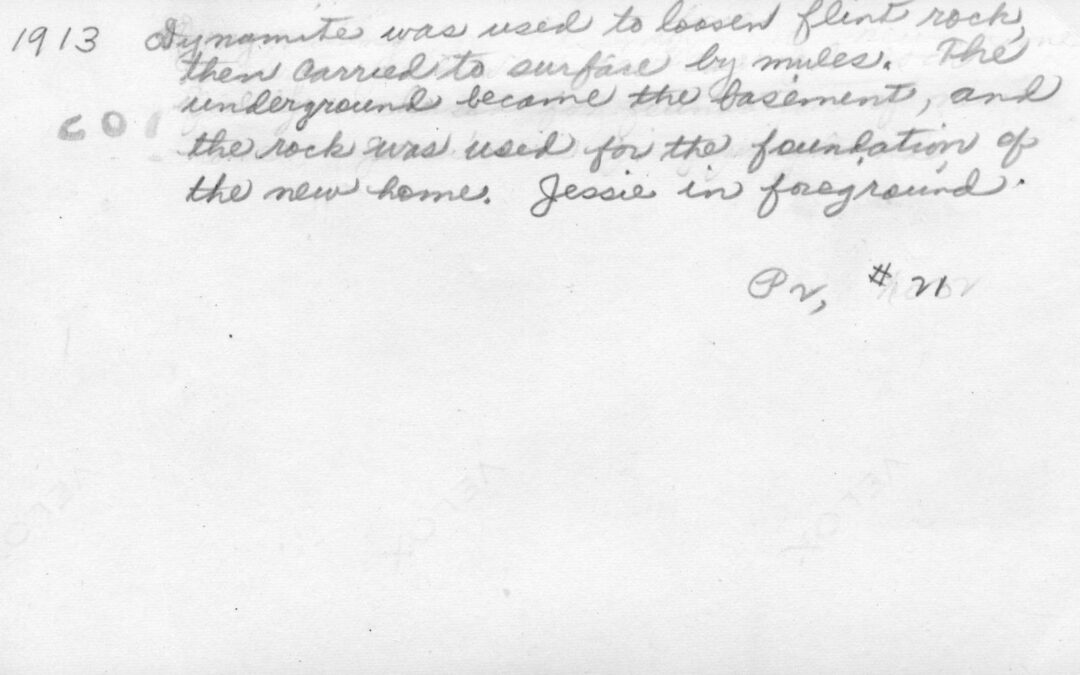 1913 Dynamite was used to loosen flint rock,
then carried to surface by mules. The
underground became the basement, and
the rock was used for the foundation of
the new home. Jessie in foreground.
CO
# 21